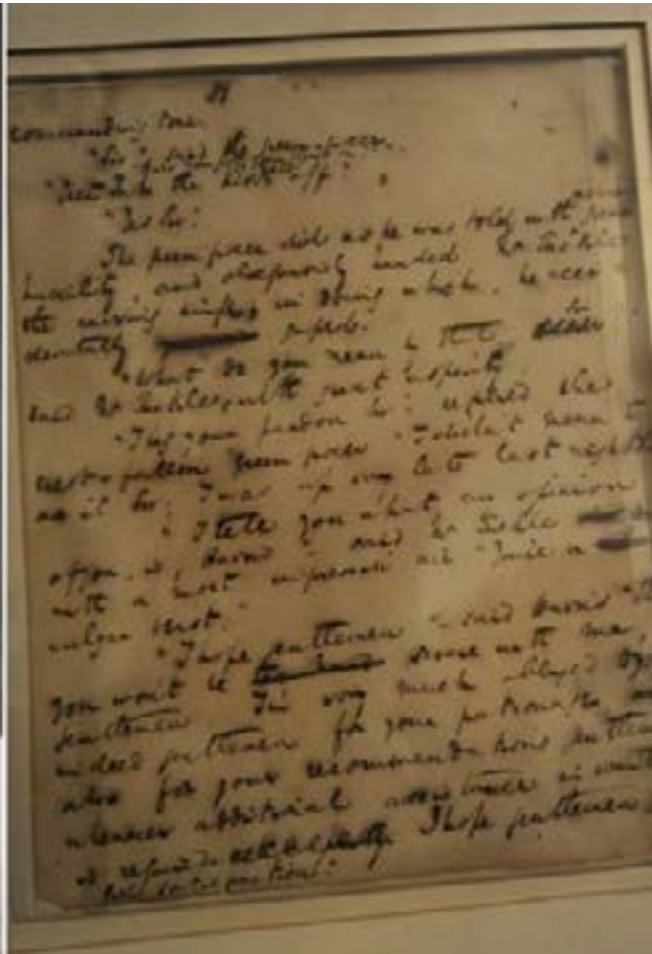 commanding tone.
"Sir" said the green-grocer.
"Then take the kiver off."
"Yes Sir."
The green grocer did as he was told with great
humility, and obsequiously handed Mr Tuckle
the carving knife; in doing which, he acci
dentally gaped.
"What do you mean by that, Sir
said Mr Tuckle with great asperity.
"I beg your pardon Sir" replied the
crest-fallen green grocer "I didn't mean to
do it Sir. I was up very late last night
"I tell you what my opinion
of you is, Harris" said Mr Tuckle
with a most impressive air "you're a
wulgar beast."
"I hope gentlemen" said Harris "th
you won't be severe with me,
gentlemen. I'm very much obliged to
indeed gentlemen for your patronage, and
also for your recommendations gentlemen
whenever additional assistance in waiting
is required. I hope gentlemen
satisfaction."